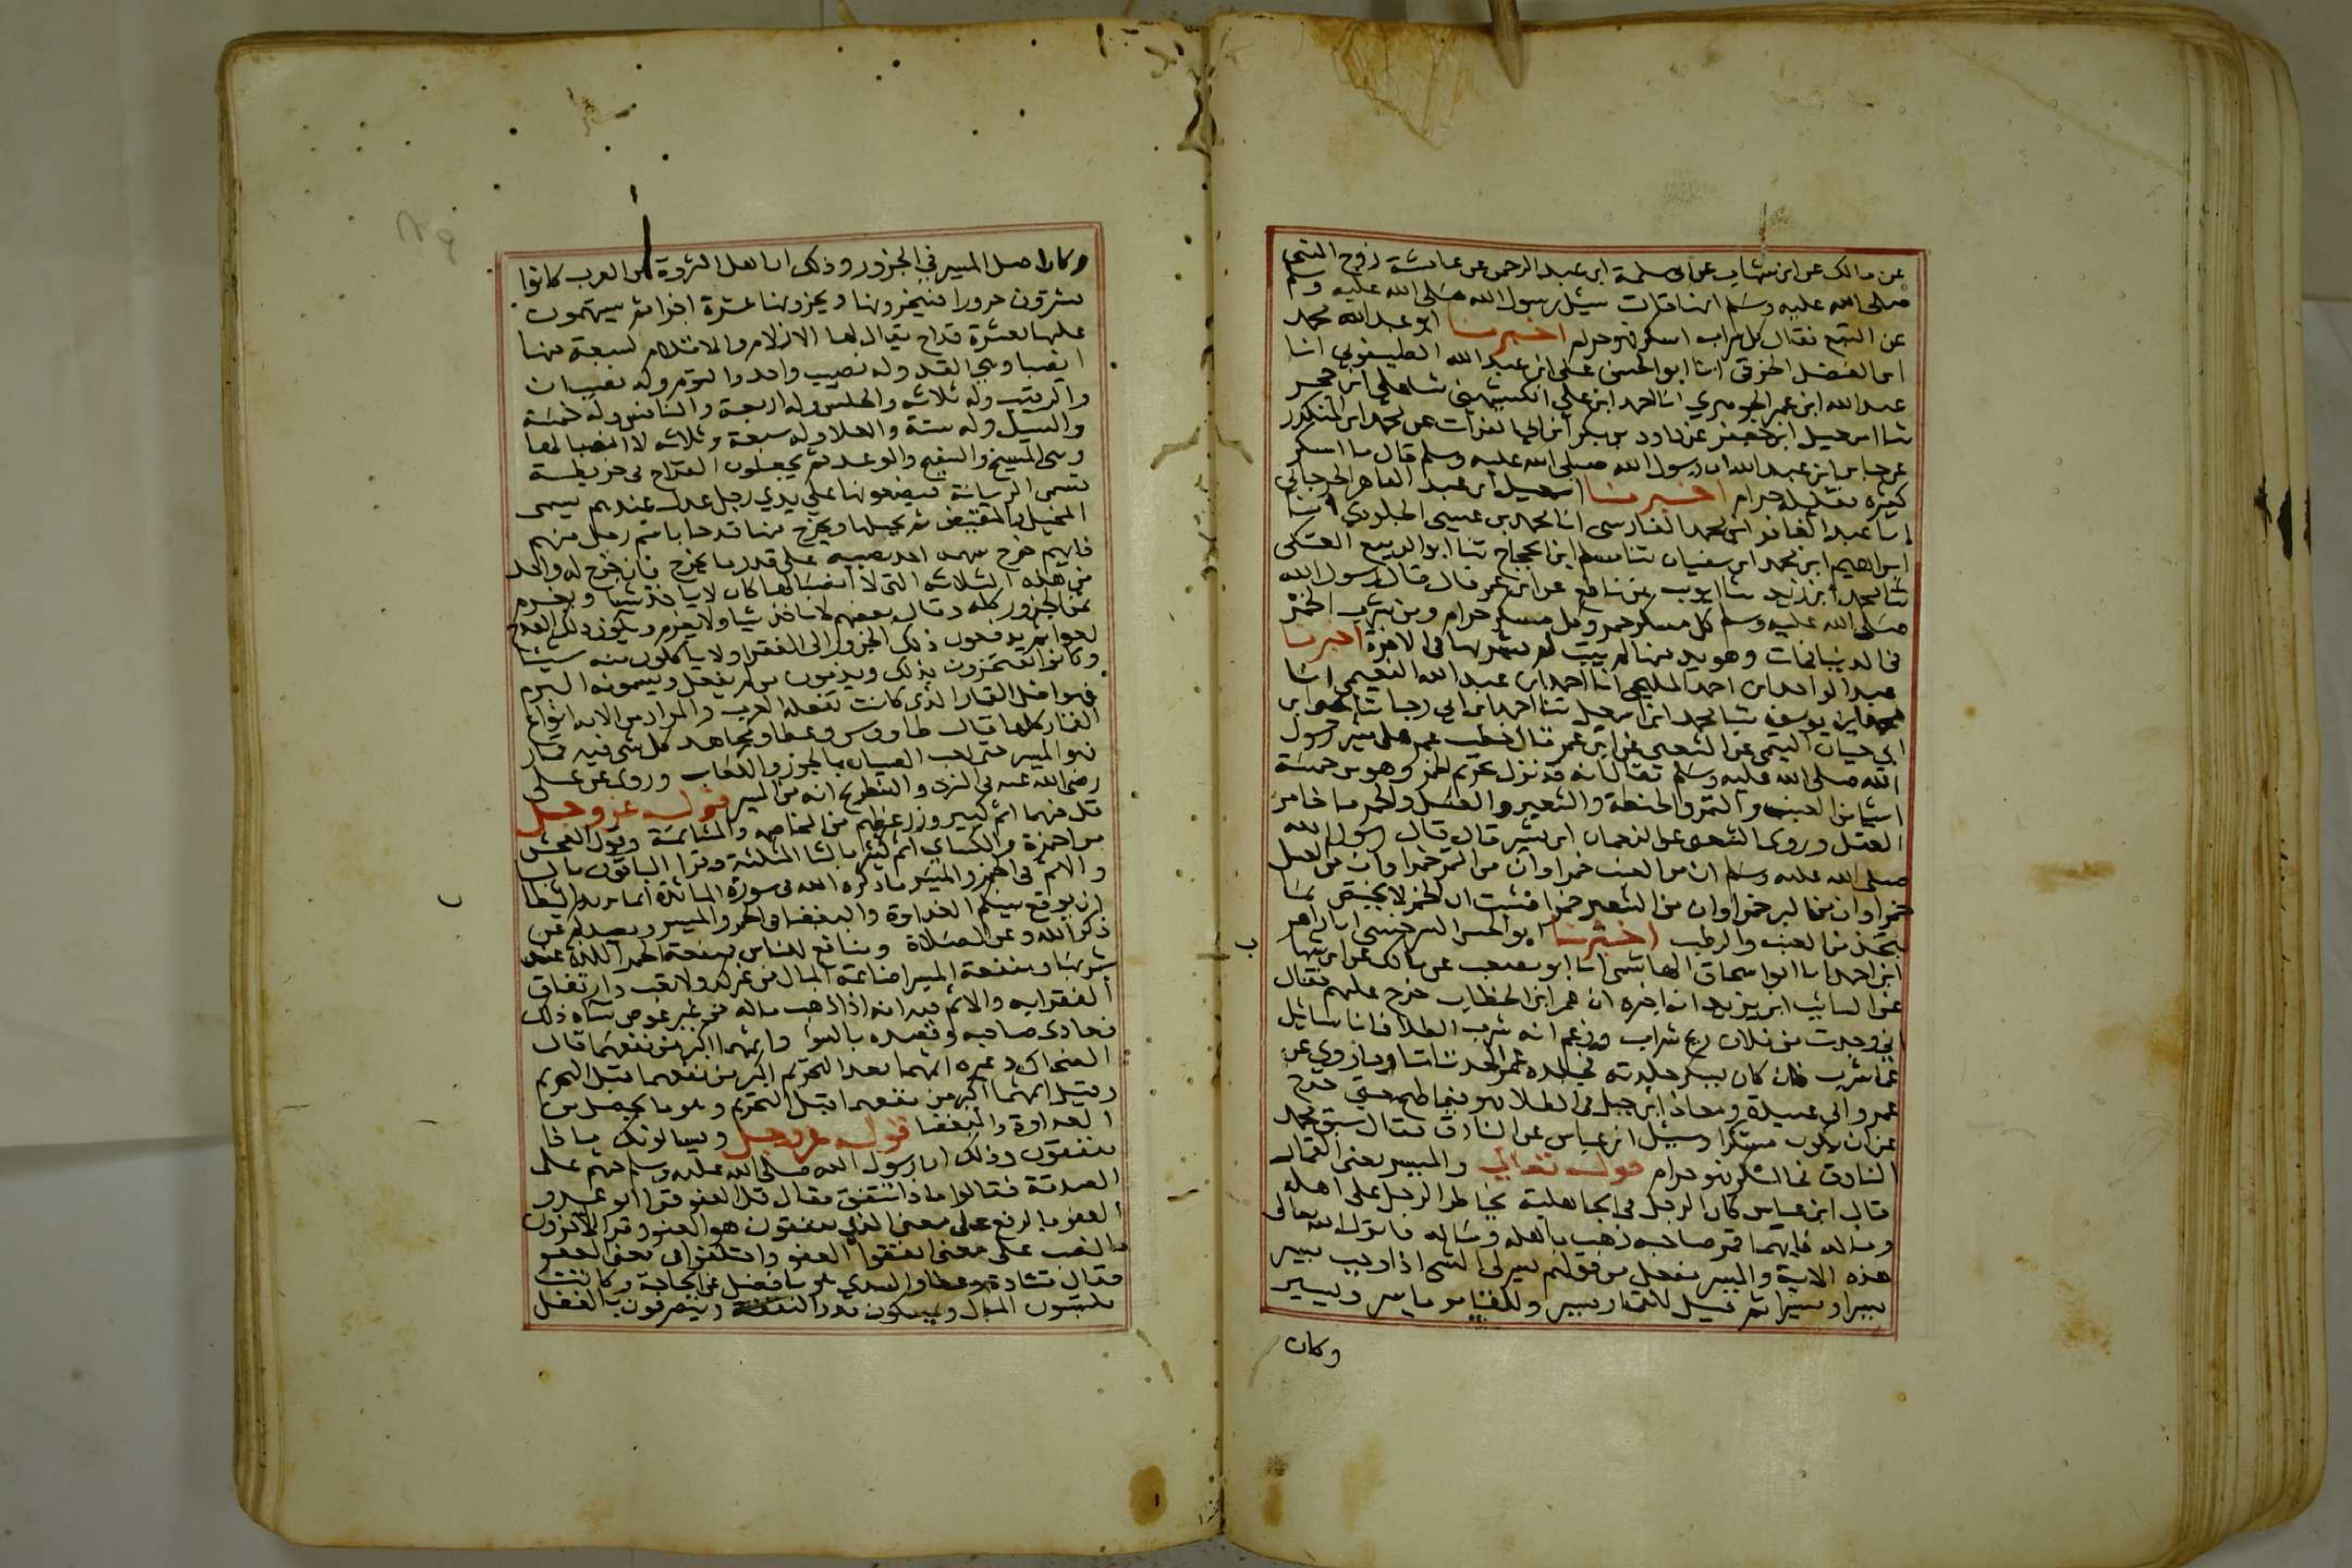 عن مالك عن ابن شهاب عن ابى سلمة ابن عبد الرحمن عن عائشة زوج النبى
صلى الله عليه وسلم انها قالت سيل رسول الله صلى الله عليه وسلم
عن البتع فقال كل شراب اسكر فهو حرام اخبرنا ابو عبد الله محمد
ابن الفضل الخرقي انا ابو الحسن على ابن عبد الله الطيسفوني انا
عبد الله ابن عمر الجوهري انا احمد ابن على الكشميهنى ثنا على ابن حجر
ثنا اسمعيل ابن جعفر عن داود بن بكر ابن ابي الفرات عن محمد ابن المنكدر
عن جابر ابن عبد الله ان رسول الله صلى الله عليه وسلم قال ما اسكر
كثيره فقليله حرام اخبرنا اسمعيل ابن عبد القاهر الجرجاني
انا عبد الغافر ابن محمد الفارسى انا محمد بن عيسى الجلودي ثنا
ابراهيم ابن محمد ابن سفيان ثنا مسلم ابن الحجاج ثنا ابو الربيع العتكى
ثنا حماد ابن زيد ثنا ايوب عن نافع عن ابن عمر قال قال رسول الله
صلى الله عليه وسلم كل مسكر خمر وكل مسكر حرام ومن شرب الخمر
فى الدنيا فمات وهو يدمنها لم يتب لم يشربها فى الاخرة اخبرنا
عبد الواحد ابن احمد المليحى انا احمد ابن عبد الله النعيمى انا
محمد ابن يوسف ثنا محمد ابن اسمعيل ثنا احمد ابن ابي رجا ثنا يحيى ابن
ابي حيان التيمى عن الشعبى عن ابن عمر قال خطب عمر على منبر رسول
الله صلى الله عليه وسلم فقال انه قد نزل تحريم الخمر وهو من خمسة
اشيا من العنب والتمر والحنطة والشعير والعسل والخمر ما خامر
العقل وروى الشعبى عن النعمان ابن بشير قال قال رسول الله
صلى الله عليه وسلم ان من العنب خمرا وان من التمر خمرا وان من العسل
خمرا وان من البر خمرا وان من الشعير خمرا فثبت ان الخمر لا يختص بما
يتخذ من العنب والرطب اخبرنا ابو الحسن السرخسى انا زاهر
ابن احمد انا ابو اسحاق الهاشمى انا ابو مصعب عن مالك عن ابن شهاب
عن السائب ابن يزيد انه اخبره ان عمر ابن الخطاب خرج عليهم فقال
اني وجدت من فلان ريح شراب وزعم انه شرب الطلا فانا سائل
عما شرب فان كان يسكر جلدته فجلده عمر الحد تاما وما روي عن
عمر وابى عبيدة ومعاذ ابن جبل فى الطلا فهو فيما طبخ حتى خرج
عن ان يكون مسكرا وسيل ابن عباس عن الباذق فقال سبق محمد
الباذق فما اسكر فهو حرام قوله تعالى والميسر يعنى القمار
قال ابن عباس كان الرجل فى الجاهلية يخاطر الرجل على اهله
وماله فايهما قمر صاحبه ذهب باهله وماله فانزل الله تعالى
هذه الاية والميسر مفعل من قولهم يسر لى الشى اذا وجب ييسر
يسرا وميسرا ثم قيل للقمار ميسر وللمقامر ياسر ويسير
وكان
وكان اصل الميسر في الجزور وذلك ان اهل الثروة من العرب كانوا
يشترون جزورا فينحرونها ويجزونها عشرة اجزا ثم يسهمون
عليها بعشرة قداح يقال لها الازلام والاقلام لسبعة منها
انصبا وهي الفذ وله نصيب واحد والتوم وله نصيبان
والرقيب وله ثلاثة والحلس وله اربعة والنافس وله خمسة
والمسبل وله ستة والمعلا وله سبعة وثلاثه لا انصبا لها
وهى المنيح والسفيح والوغد ثم يجعلون القداح فى خريطة
تسمى الربابة ويضعونها على يدي رجل عدل عندهم يسمى
المجيل والمفيض ثم يجيلها ويخرج منها قدحا باسم رجل منهم
فايهم خرج سهمه اخذ نصيبه على قدر ما يخرج فان خرج له واحد
من هذه الثلاثه التى لا انصبا لها كان لا ياخذ شيا ويغرم
ثمن الجزور كله وقال بعضهم لا ياخذ شيا ولا يغرم ويكون ذلك القدح
لغوا ثم يدفعون ذلك الجزور الى الفقرا ولا ياكلون منه شيئا
وكانوا يفتخرون بذلك ويذمون من لم يفعل ويسمونه البرم
فهو اصل القمار الذى كانت تفعله العرب والمراد من الايه انواع
القمار كلها قال طاووس وعطا ومجاهد كل شى فيه قمار
فهو الميسر حتى لعب الصبيان بالجوز والكعاب وروى عن على
رضى الله عنه فى النرد والشطرنج انه من الميسر قوله عز وجل
قل فيهما اثم كبير وزر عظيم من المخاصمه والمشاتمة وقول الفحش
قرا حمزة والكساي اثم كثير بالثا المثلثة وقرا الباقون بالبا
والاثم فى الخمر والميسر ما ذكره الله فى سورة المائدة انما يريد الشيطان
ان يوقع بينكم العداوة والبغضا فى الخمر والميسر ويصدكم عن
ذكر الله وعن الصلاة ومنافع للناس فمنفعة الخمر اللذة عند
شربها ومنفعة الميسر اصابة المال من غير كد ولا تعب وارتفاق
الفقرا به والاثم فيه انه اذا ذهب ماله من غير عوض ساه ذلك
فعادى صاحبه وقصده بالسوء واثمهما اكبر من نفعهما قال
الضحاك وغيره اثمهما بعد التحريم اكبر من نفعهما قبل التحريم
وقيل اثمهما اكبر من نفعهما قبل التحريم وهو ما يحصل من
العداوة والبغضا قوله عز وجل ويسالونك ماذا
ينفقون وذلك ان رسول الله صلى الله عليه وسلم حثهم على
الصدقة فقالوا ماذا ننفق فقال قل العفو قرا ابو عمرو
العفو بالرفع على معنى الذى ينفقون هو العفو وقرا الاخرون
بالنصب على معنى انفقوا العفو واختلفوا فى معنى العفو
فقال قتادة وعطا والسدي هو ما فضل عن الحاجة وكانت
يكتسبون المال ويمسكون قدر النفقة ويتصدقون بالفضل